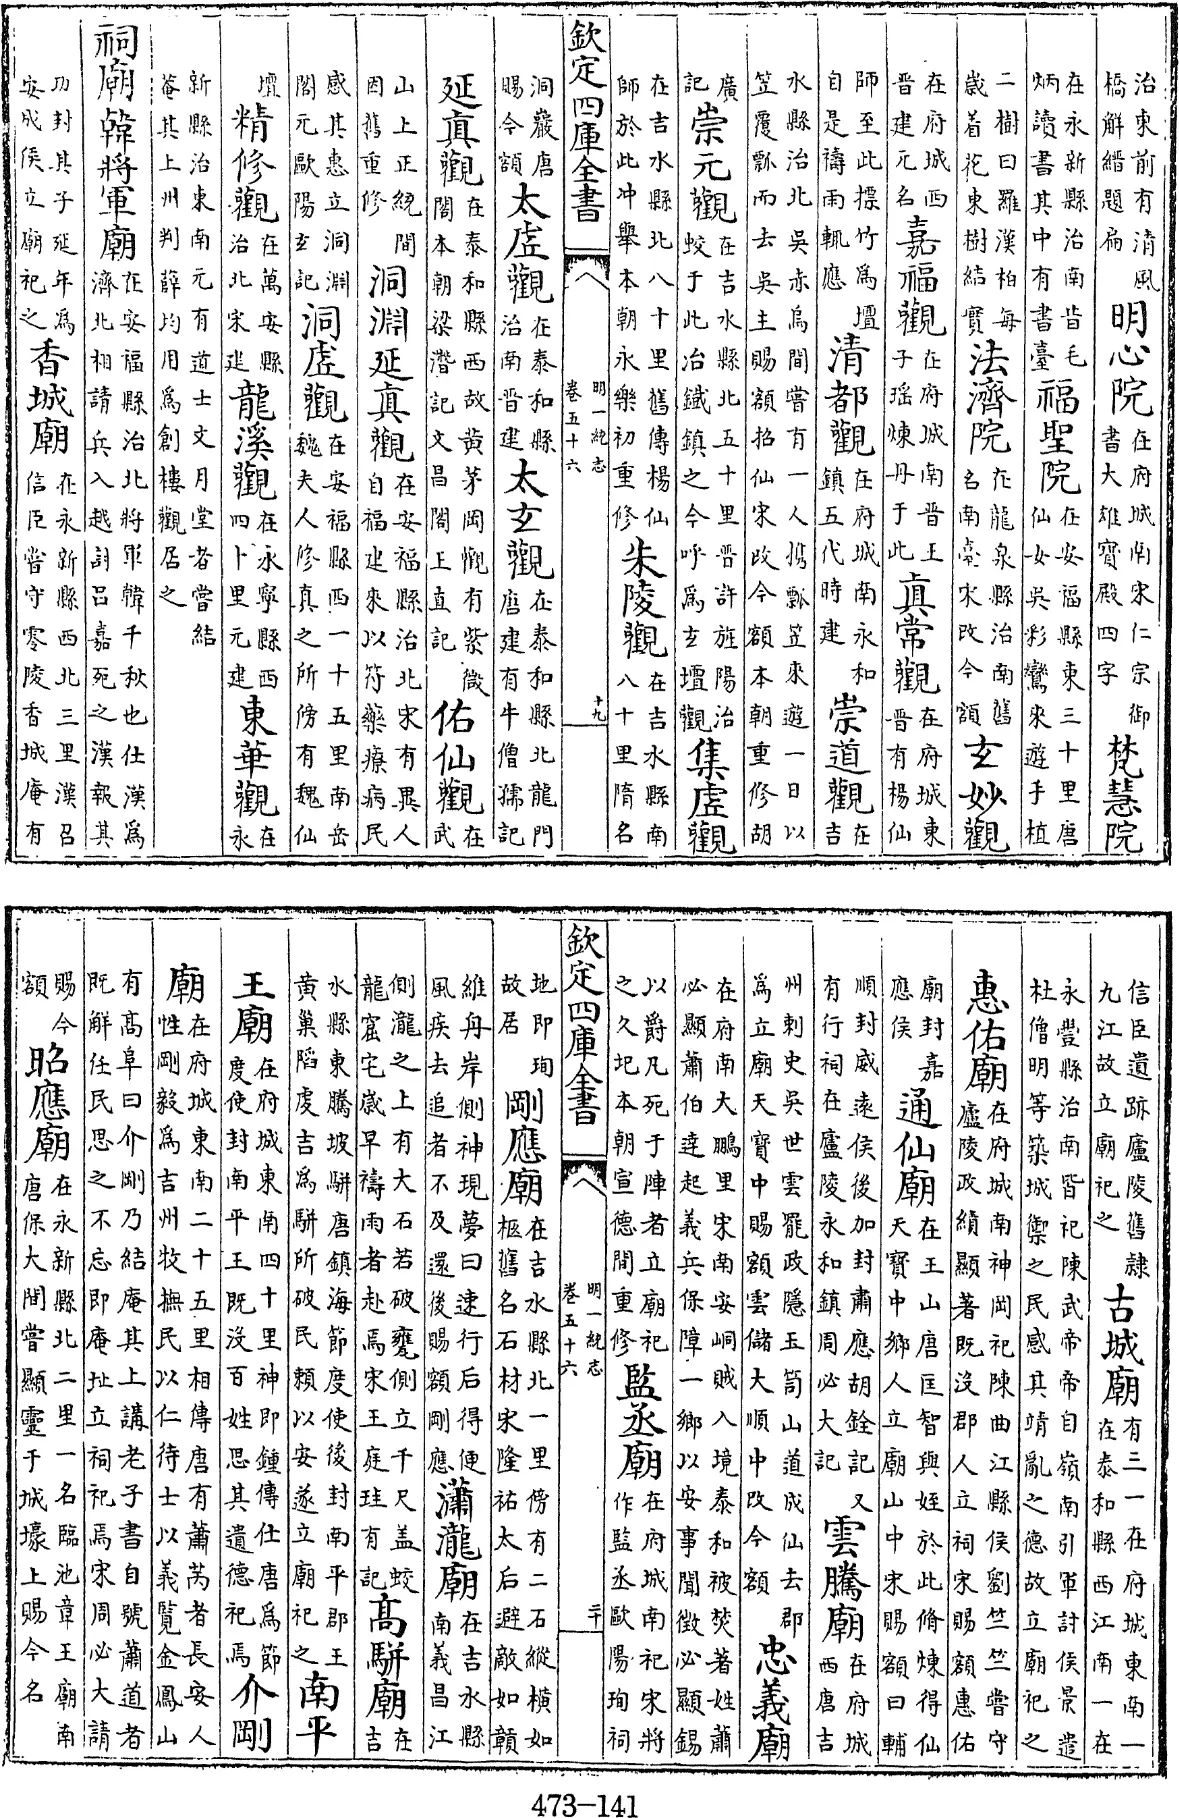 治東前有清風橋解縉題扁明心院在府城南宋仁宗御書大雄寶殿四字梵慧院
在永新縣治南昔毛炳讀書其中有書臺福聖院在安福縣東三十里唐仙女吳彩鸞來遊手植
二樹曰羅漢柏每歲着花東樹結實法濟院在龍泉縣治南舊名南臺宋改今額玄妙觀
在府城西晉建元名嘉福觀在府城南晉王子瑶煉丹于此真常觀在府城東晉有楊仙
師至此標竹為壇自是禱雨輒應清都觀在府城南永和鎮五代時建崇道觀在吉
水縣治北吳赤烏間嘗有一人携瓢笠來遊一日以笠覆瓢而去吳主賜額招仙宋改今額本朝重修胡
廣記崇元觀在吉水縣北五十里晉許旌陽治蛟于此冶鐵鎮之今呼為玄壇觀集虛觀
在吉水縣北八十里舊傳楊仙師於此冲舉本朝永樂初重修朱陵觀在吉水縣南八十里隋名
欽定四庫全書 明一統志 卷五十六 十九
洞巖唐賜今額太虛觀在泰和縣治南晉建太玄觀在泰和縣北龍門唐建有牛僧孺記
延真觀在泰和縣西故黃茅岡觀有紫微閣本朝梁潛記文昌閣王直記佑仙觀在武
山上正統間因舊重修洞淵延真觀在安福縣治北宋有異人自福建來以符藥療病民
感其惠立洞淵閣元歐陽玄記洞虛觀在安福縣西一十五里南岳魏夫人修真之所傍有魏仙
壇精修觀在萬安縣治北宋建龍溪觀在永寧縣西四十里元建東華觀在永
新縣治東南元有道士文月堂者嘗結菴其上州判薛均用為創樓觀居之
祠廟韓將軍廟在安福縣治北將軍韓千秋也仕漢為濟北相請兵入越討呂嘉死之漢報其
功封其子延年為安成侯立廟祀之香城廟在永新縣西北三里漢召信臣嘗守零陵香城庵有
信臣遺跡廬陵舊隷九江故立廟祀之古城廟有三一在府城東南一在泰和縣西江南一在
永豐縣治南皆祀陳武帝帝自嶺南引軍討侯景遣杜僧明等築城禦之民感其靖亂之德故立廟祀之
惠佑廟在府城南神岡祀陳曲江縣侯劉竺竺嘗守廬陵政績顯著既沒郡人立祠宋賜額惠佑
廟封嘉應侯通仙廟在王山唐匡智與姪於此脩煉得仙天寶中鄉人立廟山中宋賜額曰輔
順封威遠侯後加封肅應胡銓記又有行祠在廬陵永和鎮周必大記雲騰廟在府城西唐吉
州刺史吳世雲罷政隱玉笥山道成仙去郡為立廟天寶中賜額雲儲大順中改今額忠義廟
在府南大鵬里宋南安峒賊入境泰和被焚著姓蕭必顯蕭伯達起義兵保障一鄉以安事聞徵必顯錫
以爵凡死于陣者立廟祀之久圮本朝宣德間重修監丞廟在府城南祀宋將作監丞歐陽珣祠
欽定四庫全書 明一統志 卷五十六 二十
地即珣故居剛應廟在吉水縣北一里傍有二石縱橫如柩舊名石材宋隆祐太后避敵如贛
維舟岸側神現夢曰速行后得便風疾去追者不及還後賜額剛應瀟瀧廟在吉水縣南義昌江
側瀧之上有大石若破甕側立千尺盖蛟龍窟宅歲旱禱雨者赴焉宋王庭珪有記高駢廟在吉
水縣東騰坡駢唐鎮海節度使後封南平郡王黃巢䧟虔吉為駢所破民賴以安遂立廟祀之南平
王廟在府城東南四十里神即鍾傳仕唐為節度使封南平王既沒百姓思其遺德祀焉介剛
廟在府城東南二十五里相傳唐有蕭芮者長安人性剛毅為吉州牧撫民以仁待士以義覽金鳳山
有高阜曰介剛乃結庵其上講老子書自號蕭道者既解任民思之不忘即庵址立祠祀焉宋周必大請
賜今額昭應廟在永新縣北二里一名臨池章王廟南唐保大間嘗顯靈于城壕上賜今名
473-141